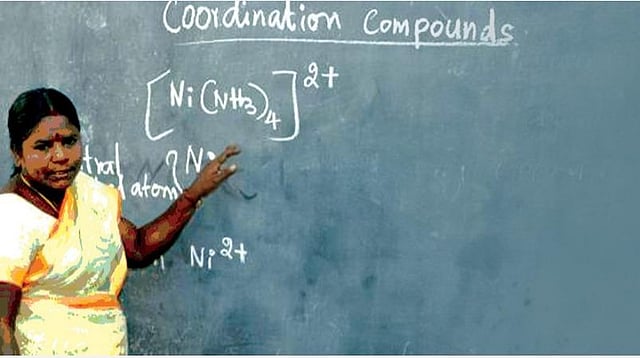 Coordination Compounds
[Ni(NH3)4]2+
atom} Ni
Ni2+